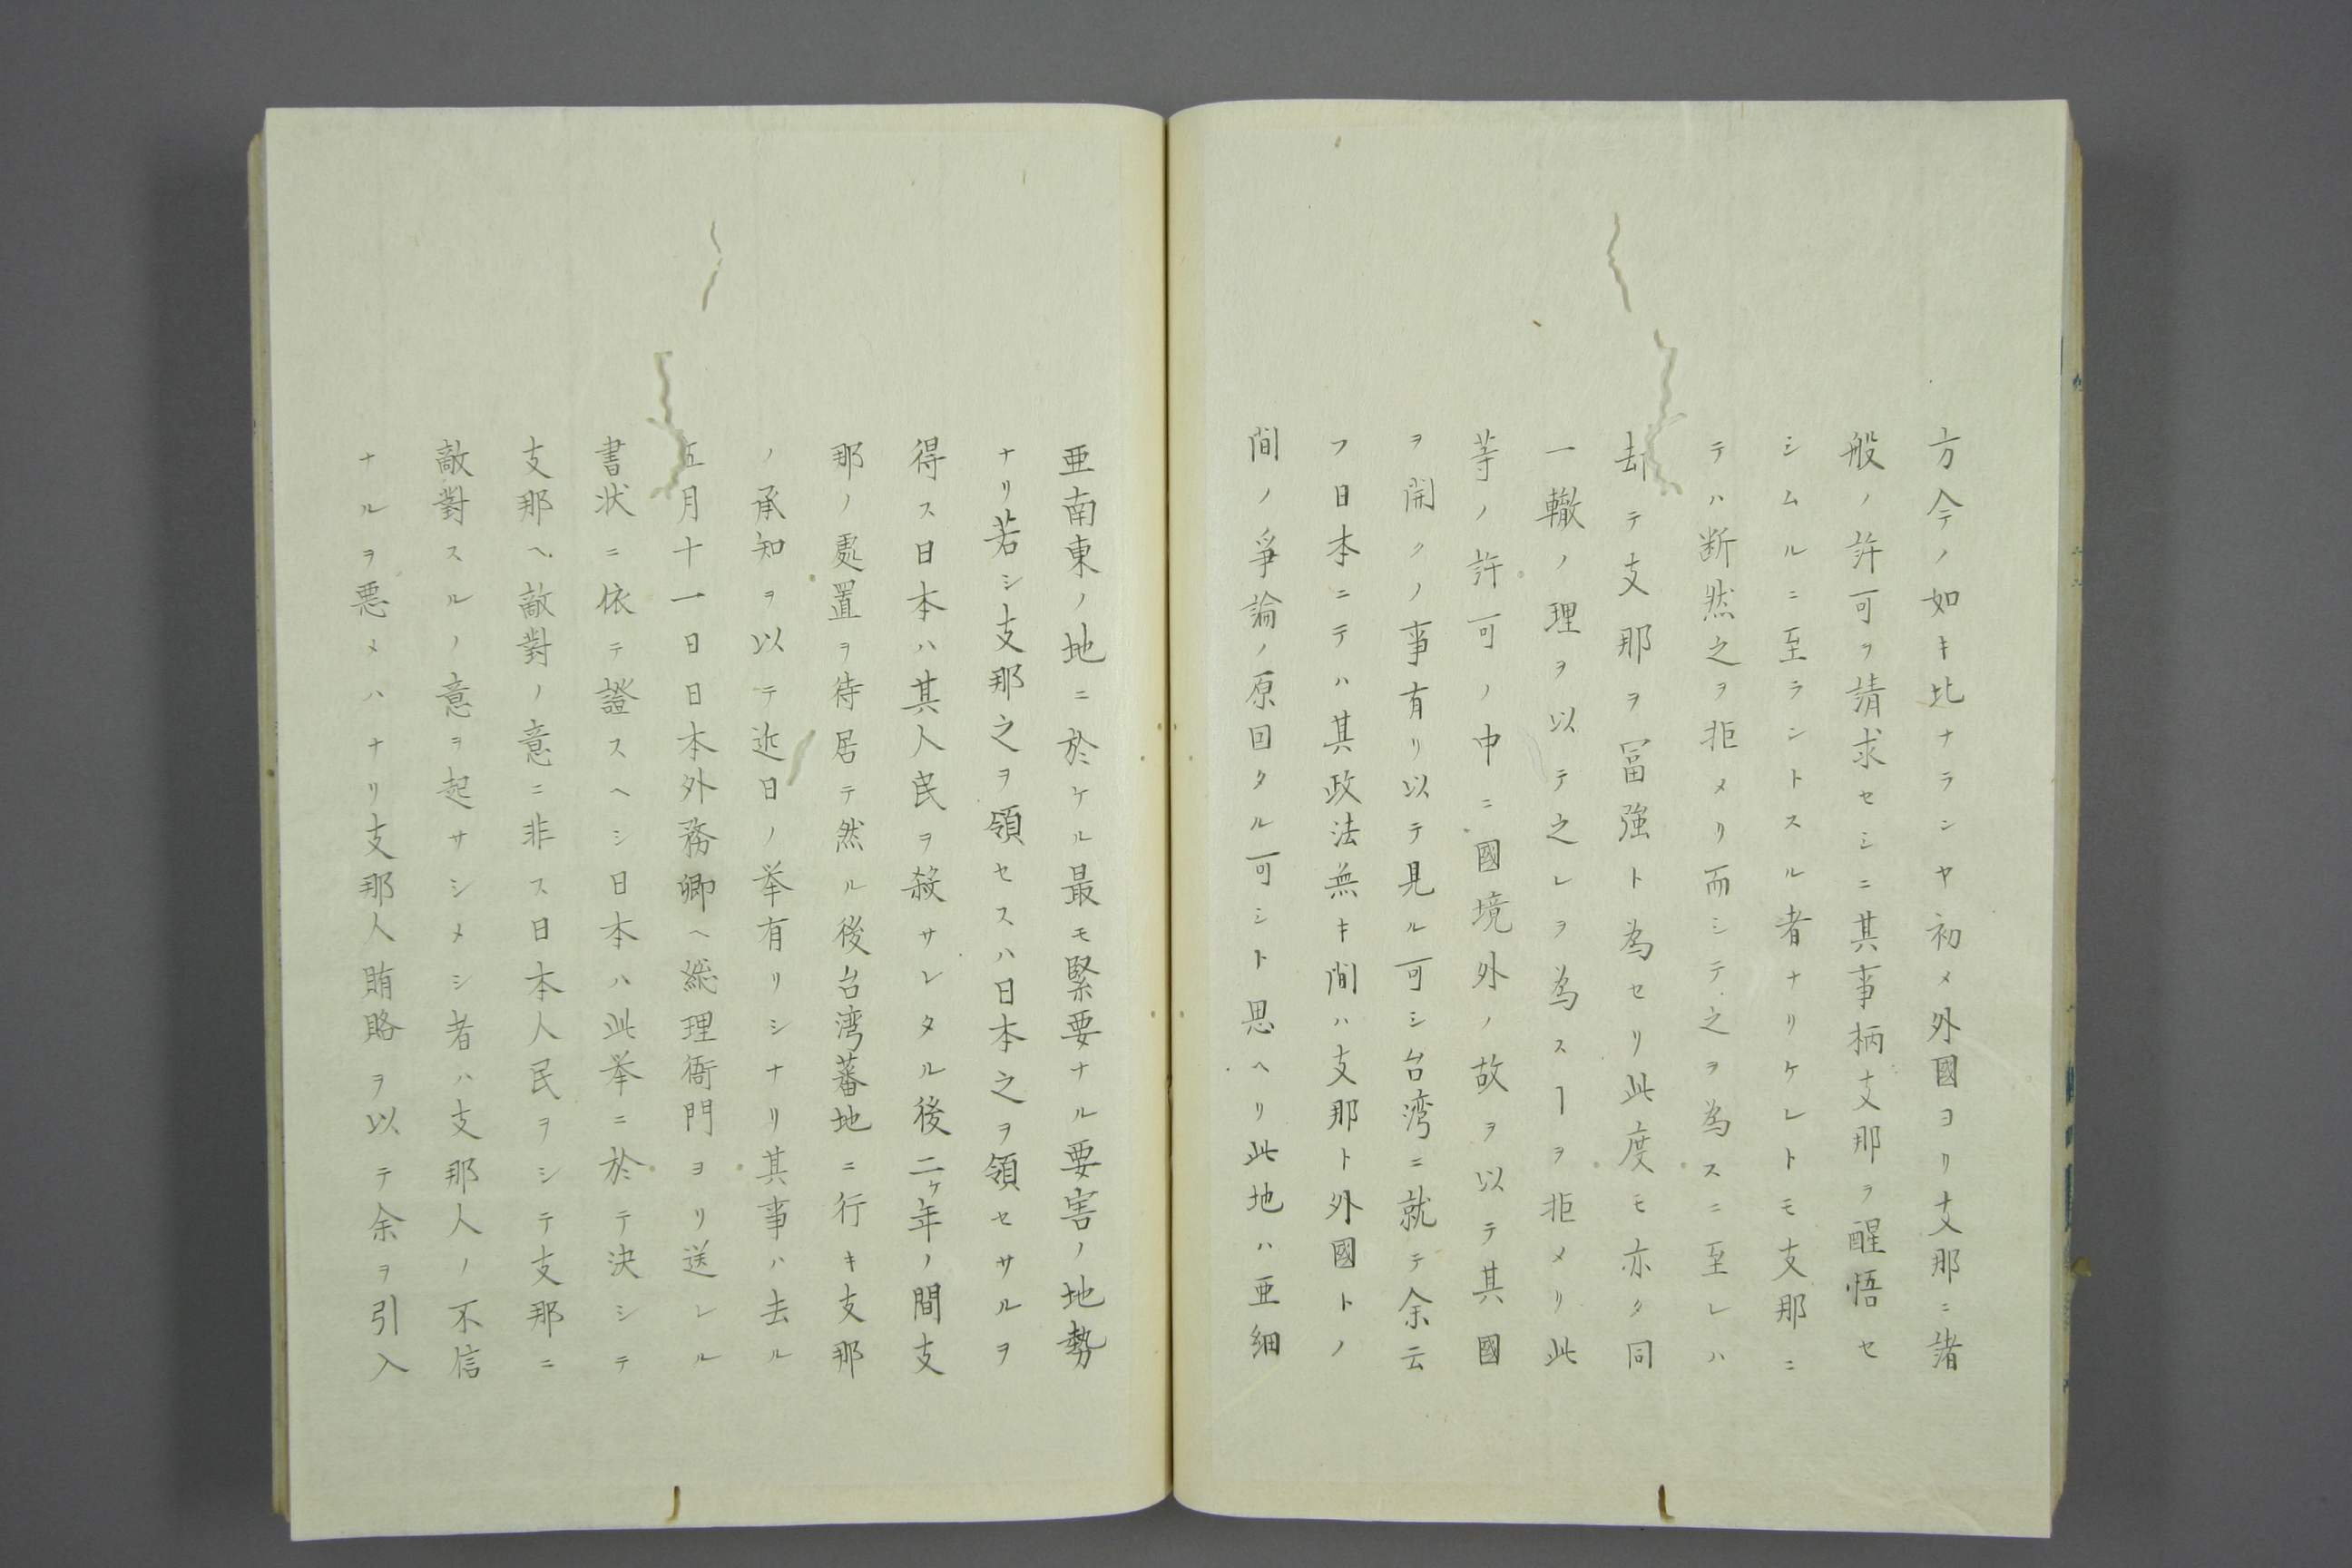 方今ノ如キ比ナランヤ初メ外國ヨリ支那ニ諸
般ノ許可ヲ請求セシニ其事柄支那ヲ醒悟セ
シムルニ至ラントスル者ナリケレトモ支那ニ
テハ断然之ヲ拒メリ而シテ之ヲ為スニ至レハ
却テ支那ヲ冨強ト為セリ此度モ亦タ同
一轍ノ理ヲ以テ之レヲ為スヿヲ拒メリ此
等ノ許可ノ中ニ國境外ノ故ヲ以テ其國
ヲ開クノ事有リ以テ見ル可シ台湾ニ就テ余云
フ日本ニテハ其政法無キ間ハ支那ト外國トノ
間ノ爭論ノ原因タル可シト思ヘリ此地ハ亜細
亜南東ノ地ニ於ケル最モ緊要ナル要害ノ地勢
ナリ若シ支那之ヲ領セスハ日本之ヲ領セサルヲ
得ス日本ハ其人民ヲ殺サレタル後二ケ年ノ間支
那ノ處置ヲ待居テ然ル後台湾蕃地ニ行キ支那
ノ承知ヲ以テ近日ノ挙有リシナリ其事ハ去ル
五月十一日日本外務卿ヘ総理衙門ヨリ送レル
書状ニ依テ證スヘシ日本ハ此挙ニ於テ決シテ
支那ヘ敵對ノ意ニ非ス日本人民ヲシテ支那ニ
敵對スルノ意ヲ起サシメシ者ハ支那人ノ不信
ナルヲ悪メハナリ支那人賄賂ヲ以テ余ヲ引入